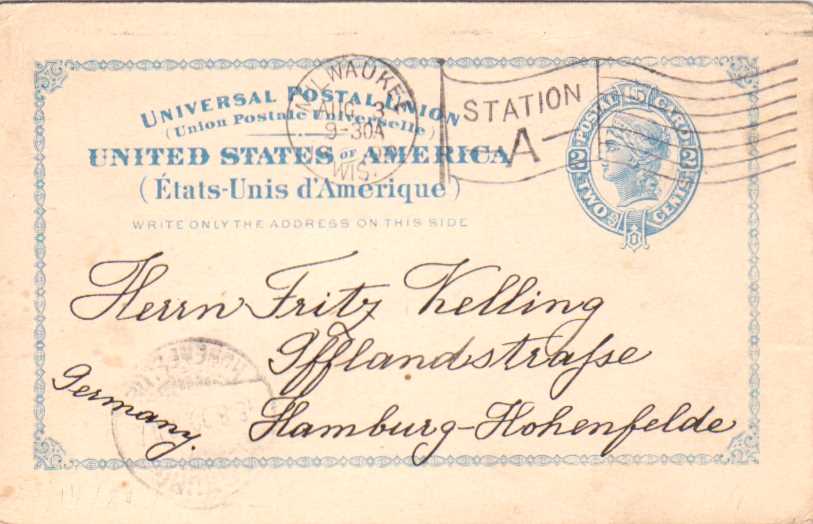 UNIVERSAL POSTAL UNION
(Union Postale Universelle)
UNITED STATES OF AMERICA
(États-Unis d'Amérique)
WRITE ONLY THE ADDRESS ON THIS SIDE
MILWAUKEE
AUG 3
9-30A
WIS.
STATION
A
POSTAL CARD
2 2
TWO CENTS
Herrn Fritz Kelling
Ifflandstraße
Hamburg-Hohenfelde
Germany.